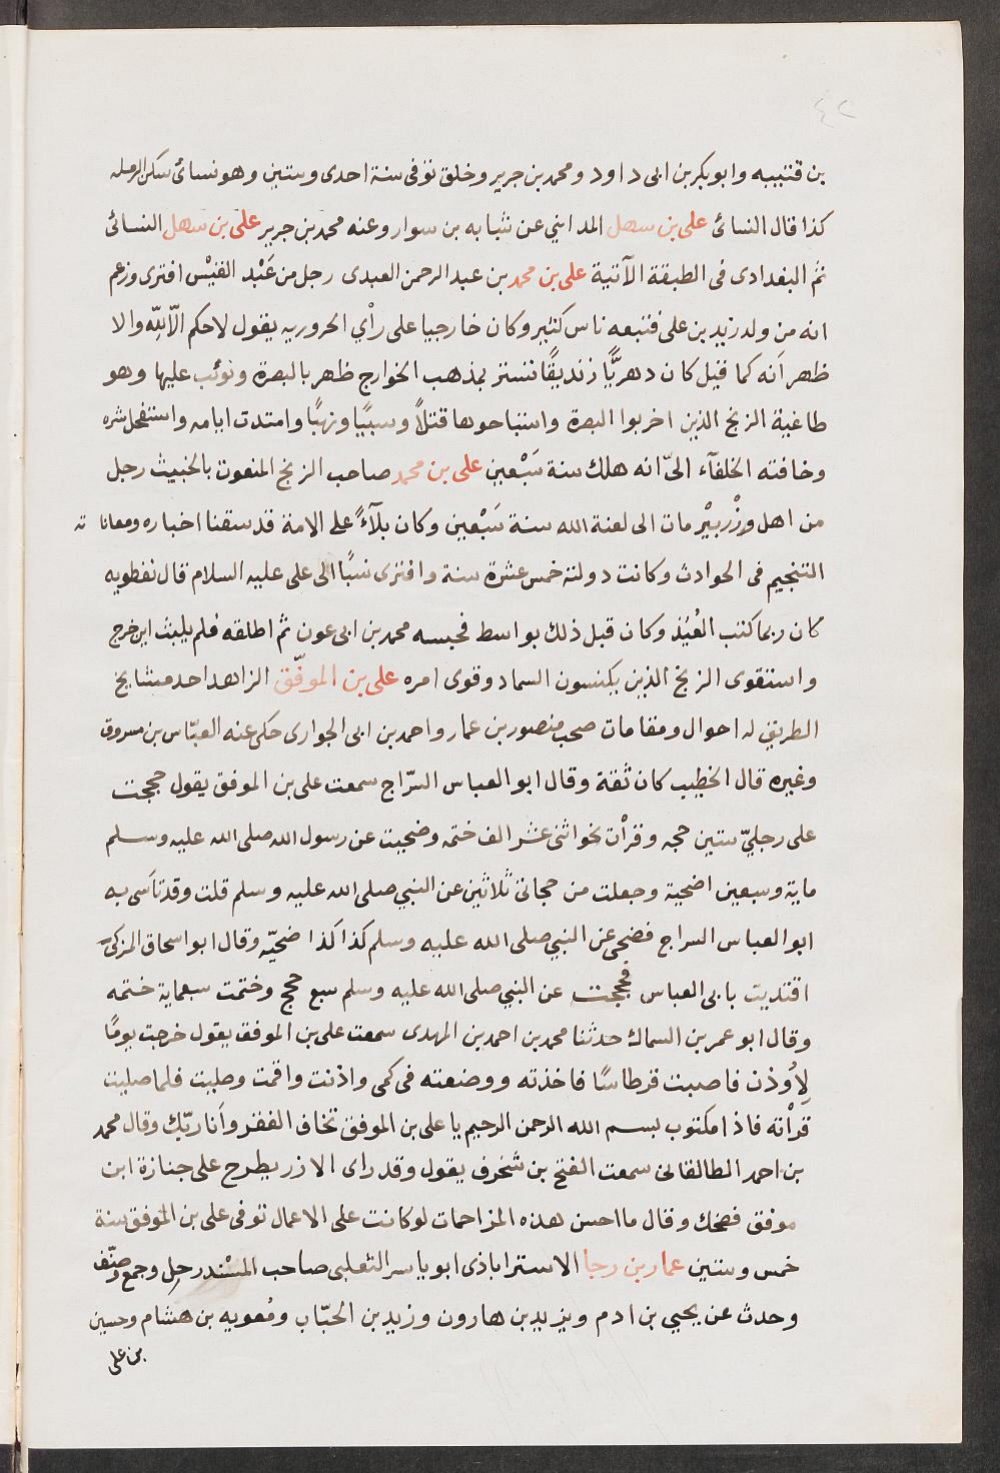 ٤٢
بن قتيبه وابوبكر بن ابى داود ومحمد بن جرير وخلق توفى سنة احدى وستين وهو نسائى سكن الرمله
كذا قال النسائى على بن سهل المدايني عن شبابه بن سوار وعنه محمد بن جرير على بن سهل النسائى
ثم البغدادى فى الطبقة الآتية على بن محمد بن عبد الرحمن العبدى رجل من عَبْد القيْس افترى وزعم
انه من ولد زيد بن على فتبعه ناس كثير وكان خارجيا على رأي الحروريه يقول لا حكم الّا لِلّه والا
ظهر اَنه كما قيل كان دهريًّا زنديقًا تستر بمذهب الخوارج ظهر بالبصرة وتوثب عليها وهو
طاغية الزنج الذين اخربوا البصرة واستباحوها قتلاً وسبيًا ونهبًا وامتدت ايامه واستفحل شره
وخافته الخلفآء الىّ انه هلك سنة سَبْعين على بن محمد صاحب الزنج المنعوت بالخبيث رجل
من اهل وزْرَبيْر مات الى لعنة الله سنة سَبْعين وكان بلآءً على الامة قد سقنا اخباره ومعانا ته
التنجيم فى الحوادث وكانت دولته خمس عشرة سنة وافترى نسبًا الى على عليه السلام قال نفطويه
كان ربما كتب العُيُذ وكان قبل ذلك بواسط فحبسه محمد بن ابى عون ثم اطلقه فلم يلبث اين خرج
واستقوى الزنج الذين يكنسون السماد وقوى امره على بن الموفّق الزاهد احد مشايخ
الطريق له احوال ومقامات صحب منصور بن عمار واحمد بن ابى الجوارى حكى عنه العبّاس بن مسروق
وغيره قال الخطيب كان ثقة وقال ابو العباس السرّاج سمعت على بن الموفق يقول حججت
على رجليّ ستين حجه وقرأْت نحوا ثنى عشر الف ختمه وضحيت عن رسول الله صلى الله عليه وسلم
ماية وسبعين اضحية وجعلت من حجاتى ثلاثين عن النبي صلى الله عليه وسلم قلت وقد تأسى به
ابو العباس السراج فضحى عن النبي صلى الله عليه وسلم كذا كذا ضحيّه وقال ابو اسحاق المزكى
اقتديت بابى العباس فحججت عن النبي صلى الله عليه وسلم سبع حجج وختمت سبعماية ختمه
وقال ابو عمر بن السماك حدثنا محمد بن احمد بن المهدى سمعت على بن الموفق يقول خرجت يومًا
لِأُوذن فاصبت قرطاسًا فاخذته ووضعته فى كمى واذنت واقمت وصليت فلما صليت
قرأْته فاذا مكتوب بسم الله الرحمن الرحيم يا على بن الموفق تخاف الفقر وأنا ربّك وقال محمد
بن احمد الطالقانى سمعت الفتح بن شخرف يقول وقد راى الازر يطرح على جنازة ابن
موفق فضحك وقال ما احسن هذه المزاحمات لوكانت على الاعمال توفى على بن الموفق سنة
خمس وستين عمار بن رجا الاستراباذى ابو ياسر الثعلبى صاحب المسْند رحل وجمع وصنّف
وحدث عن يحيى بن ادم ويزيد بن هارون وزيد بن الحبّاب ومُعويه بن هشام وحسين
بن على